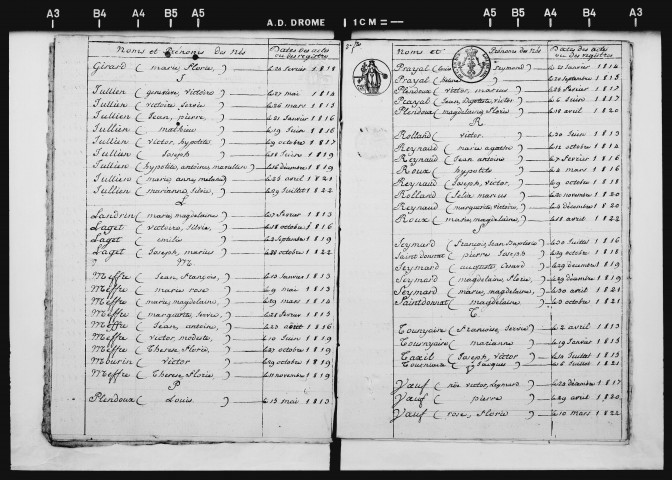 A3 B4 A4 B5 A5 A.D. DROME 1 CM A5 B5 A4 B4 A3
Noms et Prénoms des Nés Dates des actes ou des registres
Girard ( marie, Florie, )
J
Jullien ( ) le 27 mai 1814
Jullien ( victoire ) le 26 mars 1813
Jullien ( Jean, pierre, ) le 21 Janvier 1816
Jullien ( mathieu ) le 19 Juin 1816
Jullien ( victor, hypolite ) le 19 octobre 1817
Jullien ( Joseph ) 1819
Jullien ( hypolite, antoine, ) 1819
Jullien ( marie, anne, ) avril 1821
Jullien ( marianne, Silvie, ) le 29 Juillet 1822
L
Landrin ( marie, magdelaine ) fevrier 1813
Laget ( victoire, Silvie, ) le 18 octobre 1816
Laget ( emilie ) Septembre 1819
Laget ( Joseph, marius ) octobre 1822
M
Meffre ( Jean, François, ) le 13 Janvier 1813
Meffre ( marie rose ) le 9 mai 1813
Meffre ( marie, magdelaine, ) le 29 mars 1814
Meffre ( marguerite, ) fevrier 1815
Meffre ( Jean, antoine, ) le 23 août 1816
Meffre ( victor, modeste, ) le 10 Juin 1819
Meffre ( Therese, Florie, ) le 27 octobre 1819
Mourin ( victor ) le 29 octobre 1819
Meffre ( Therese, Florie, ) novembre 1819
P
Plendoux ( Louis, ) le 13 mai 1813
Noms et Prénoms des Nés Dates des actes ou des registres
Prayal ( ) Janvier 1814
Prayal ( ) Septembre 1815
Plendoux ( victor, marius ) fevrier 1817
Prayal ( Jean, Baptiste, victor ) le 6 Juin 1817
Plendoux ( magdelaine, Florie ) le 18 avril 1820
R
Rolland ( victor ) le 30 Juin 1813
Reynaud ( marie agathe ) octobre 1814
Reynaud ( Jean antoine ) le 7 fevrier 1816
Roux ( hypolite ) le 4 mars 1816
Reynaud ( Joseph, victor, ) le 9 octobre 1818
Rolland ( marius ) novembre 1820
Reynaud ( marguerite, victoire ) Decembre 1820
Roux ( marie, magdelaine, ) le 18 avril 1822
S
Seymard ( François, Jean Baptiste ) le 30 Juillet 1816
Saint donnat ( pierre Joseph ) le 29 octobre 1818
Seymard ( auguste Cesard ) le 29 decembre 1819
Seymard ( magdelaine, Florie, ) le 29 decembre 1819
Seymard ( marie, magdelaine, ) le 30 avril 1821
Saint donnat ( magdelaine ) octobre 1821
T
Tournaire ( ) le 2 avril 1813
Tournaire ( marianne ) le 19 Janvier 1815
Taxil ( Joseph, victor ) Juillet 1815
( Jacques ) Juillet 1821
V
Vauf ( ) le 23 decembre 1817
Vauf ( pierre ) le 29 avril 1820
Vauf ( rose, Florie ) le 10 mars 1822